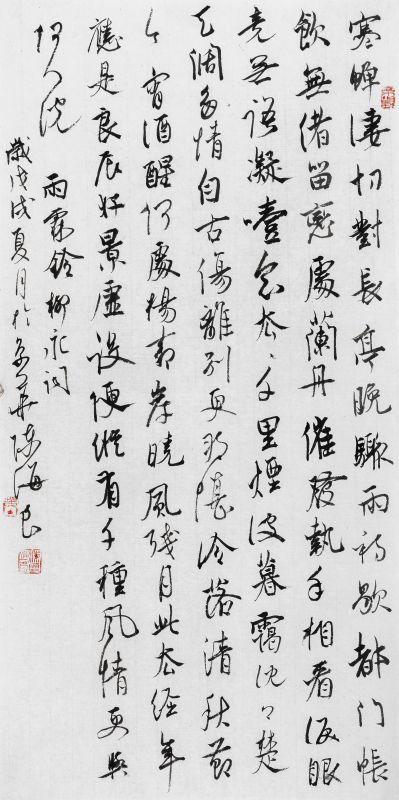 寒蟬凄切對長亭晚驟雨初歇都門帳
飲無緒留戀處蘭舟催發執手相看淚眼
竟无語凝噎念去々千里煙波暮靄沈々楚
天闊多情自古傷離別更那堪冷落清秋節
今宵酒醒何處楊柳岸曉風殘月此去經年
應是良辰好景虛設便縱有千種風情更與
何人說
雨霖鈴柳永詞
歲戊戌夏月於京華陳海良